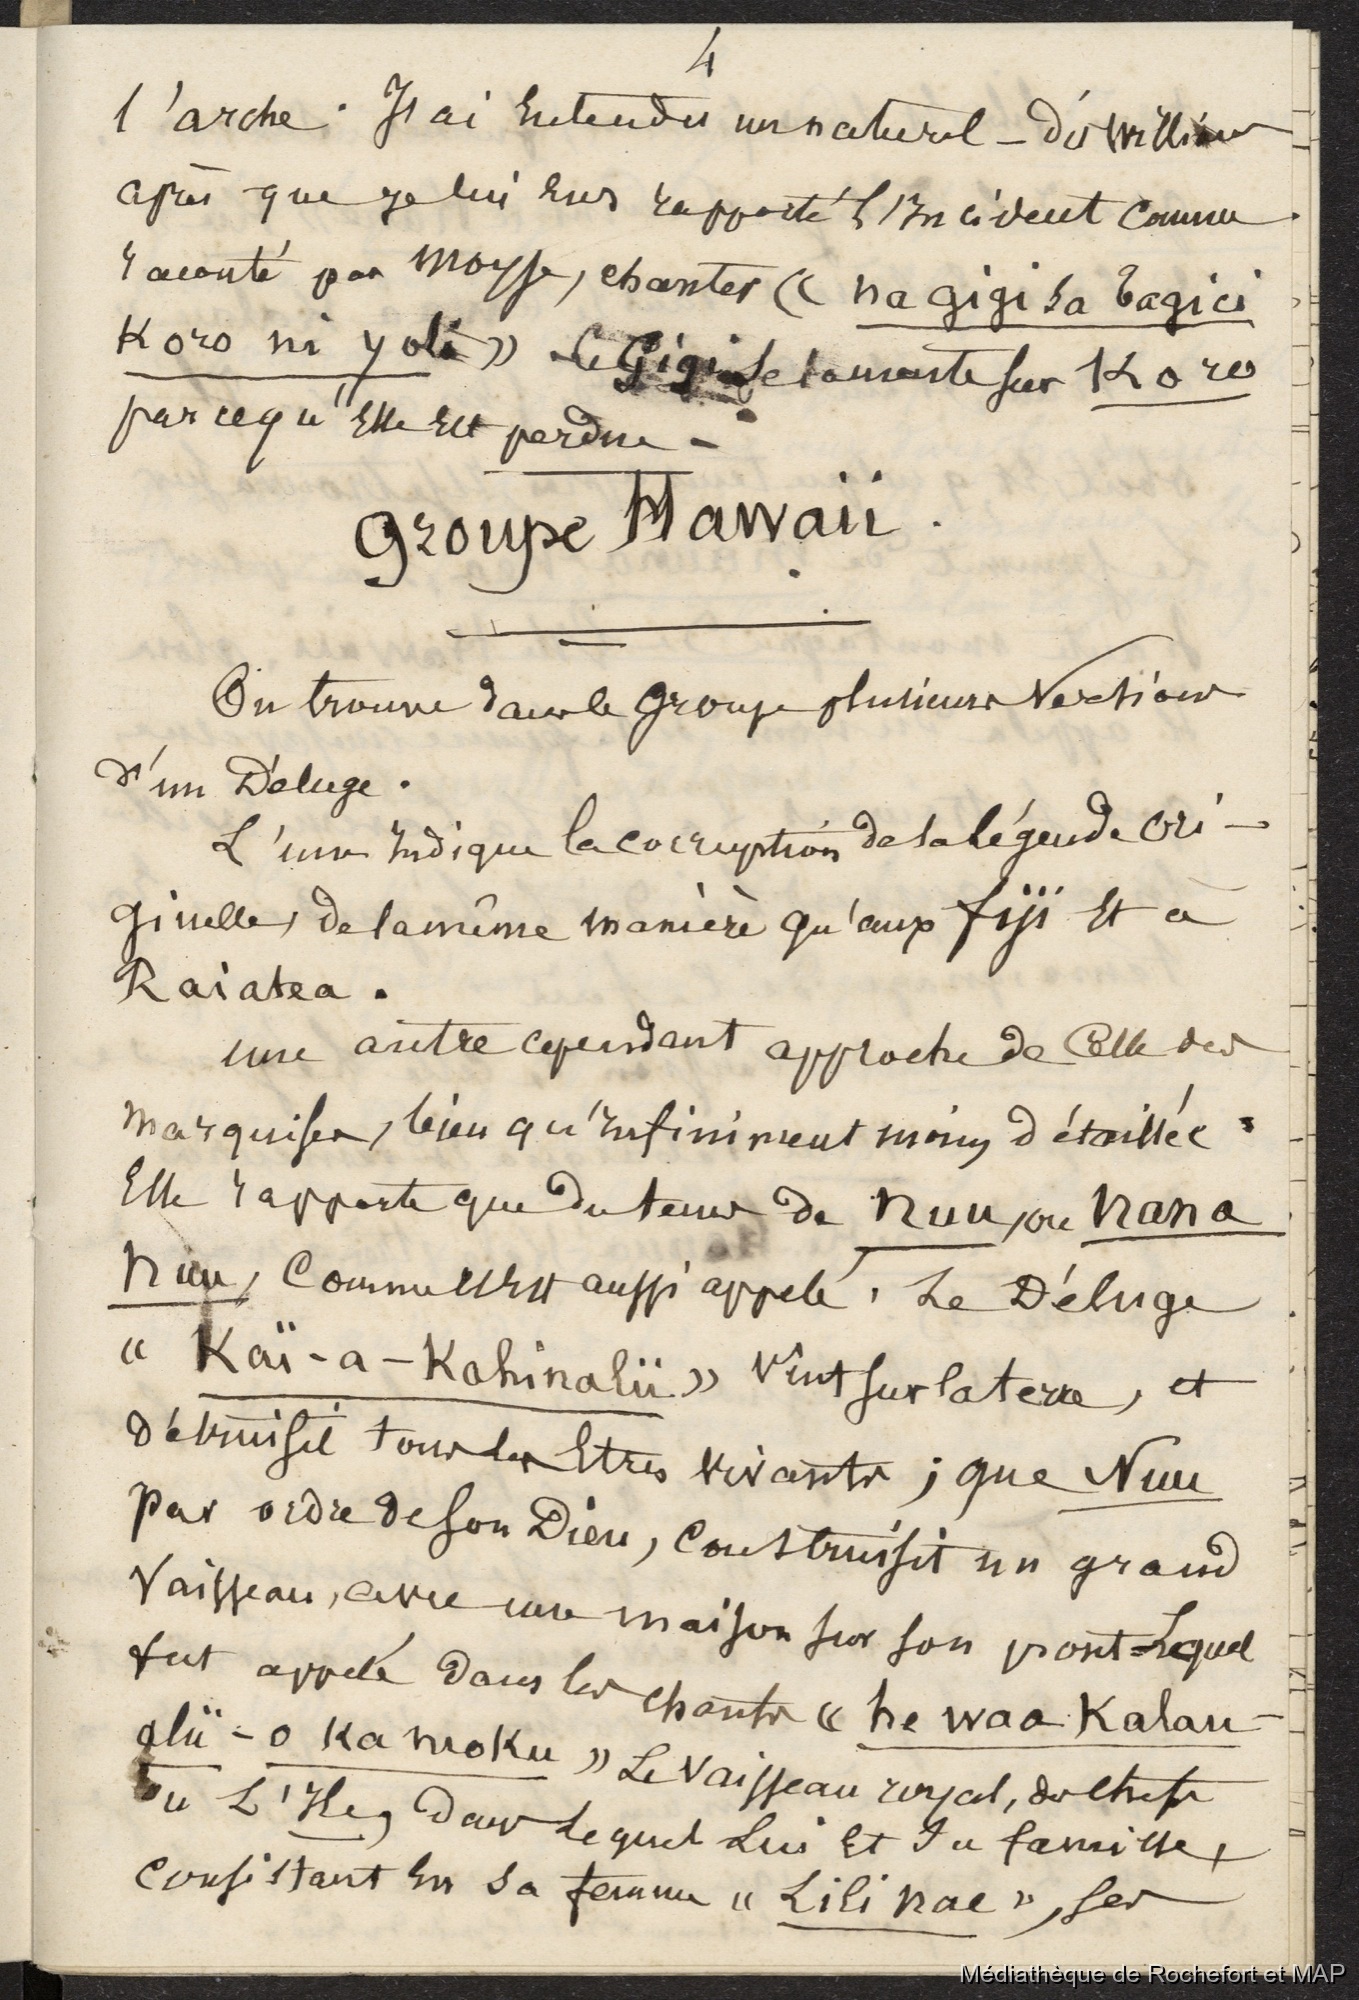 4
l'arche. J'ai Entendu un naturel – dit William
après que je lui Eus rapporté l'Incident comme
raconté par Moyse, chanter « na gigi sa tagici
Koro ni yoli » Le Gigi se lamente sur Koro
parcequ'Elle Est perdue –
Groupe Hawaii.
On trouve dans le Groupe plusieurs Versions
d'un Déluge.
L'une Indique la corruption de la légende ori-
ginelle, de la même manière qu'aux fiji Et à
Raiatea.
une autre cependant approche de Celle des
marquises, bien qu'Infiniment moins détaillée.
Elle rapporte que du tems de Nuu, ou Nana
Nuu, comme Il Est aussi appelé, Le Déluge
« Kaï-a-Kahinalii » Vint sur la terre, et
détruisit tous les Etres vivants ; que Nuu
par ordre de son Dieu, construisit un grand
Vaisseau, avec une maison sur son pont - Lequel
fut appelé dans les chants « he waa Kalau-
alii-o ka moku » Le Vaisseau royal, des chefs
ou L'Ile, dans Lequel Lui Et Sa famille,
consistant En Sa femme « Lili Nae », ses
Médiathèque de Rochefort et MAP